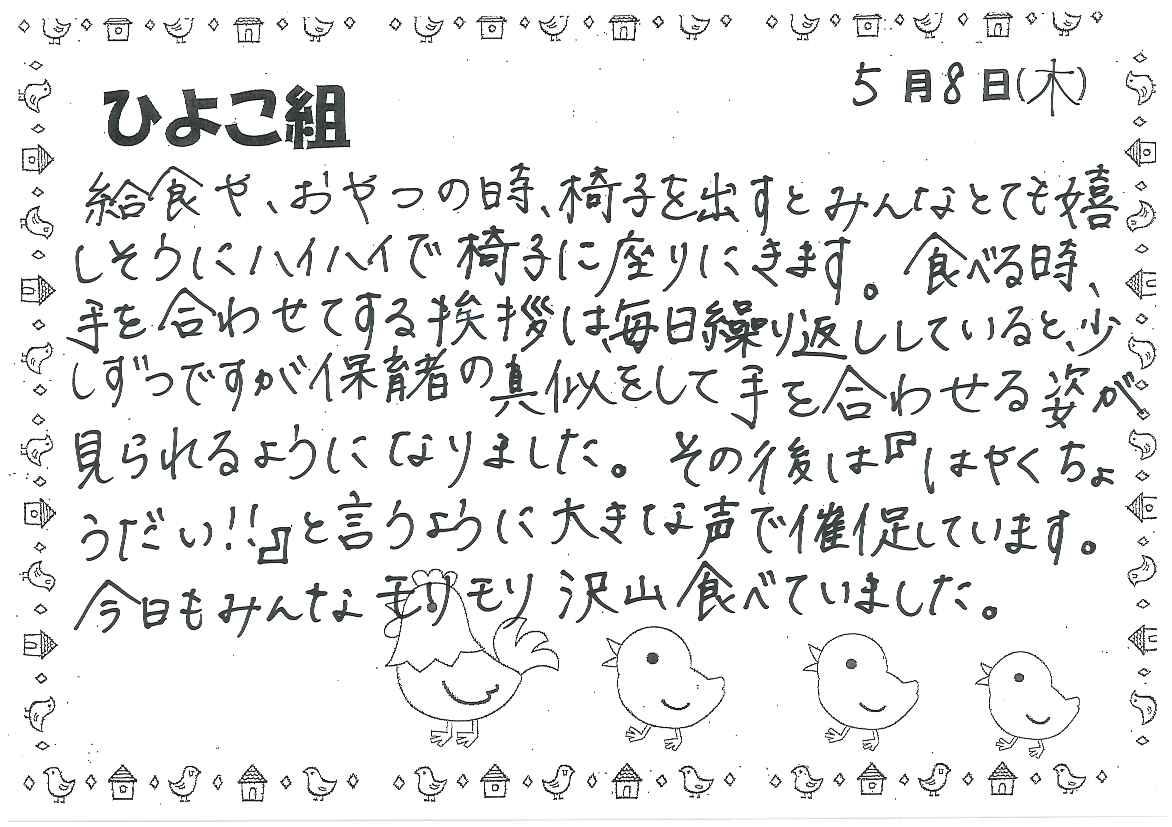 5月8日(木)
ひよこ組
給食や、おやつの時、椅子を出すとみんなとても嬉
しそうにハイハイで椅子に座りにきます。食べる時、
手を合わせてする挨拶は、毎日繰り返ししていると、少
しずつですが保育者の真似をして手を合わせる姿が
見られるようになりました。その後は『はやくちょ
うだい!!』と言うように大きな声で催促しています。
今日もみんなモリモリ沢山食べていました。